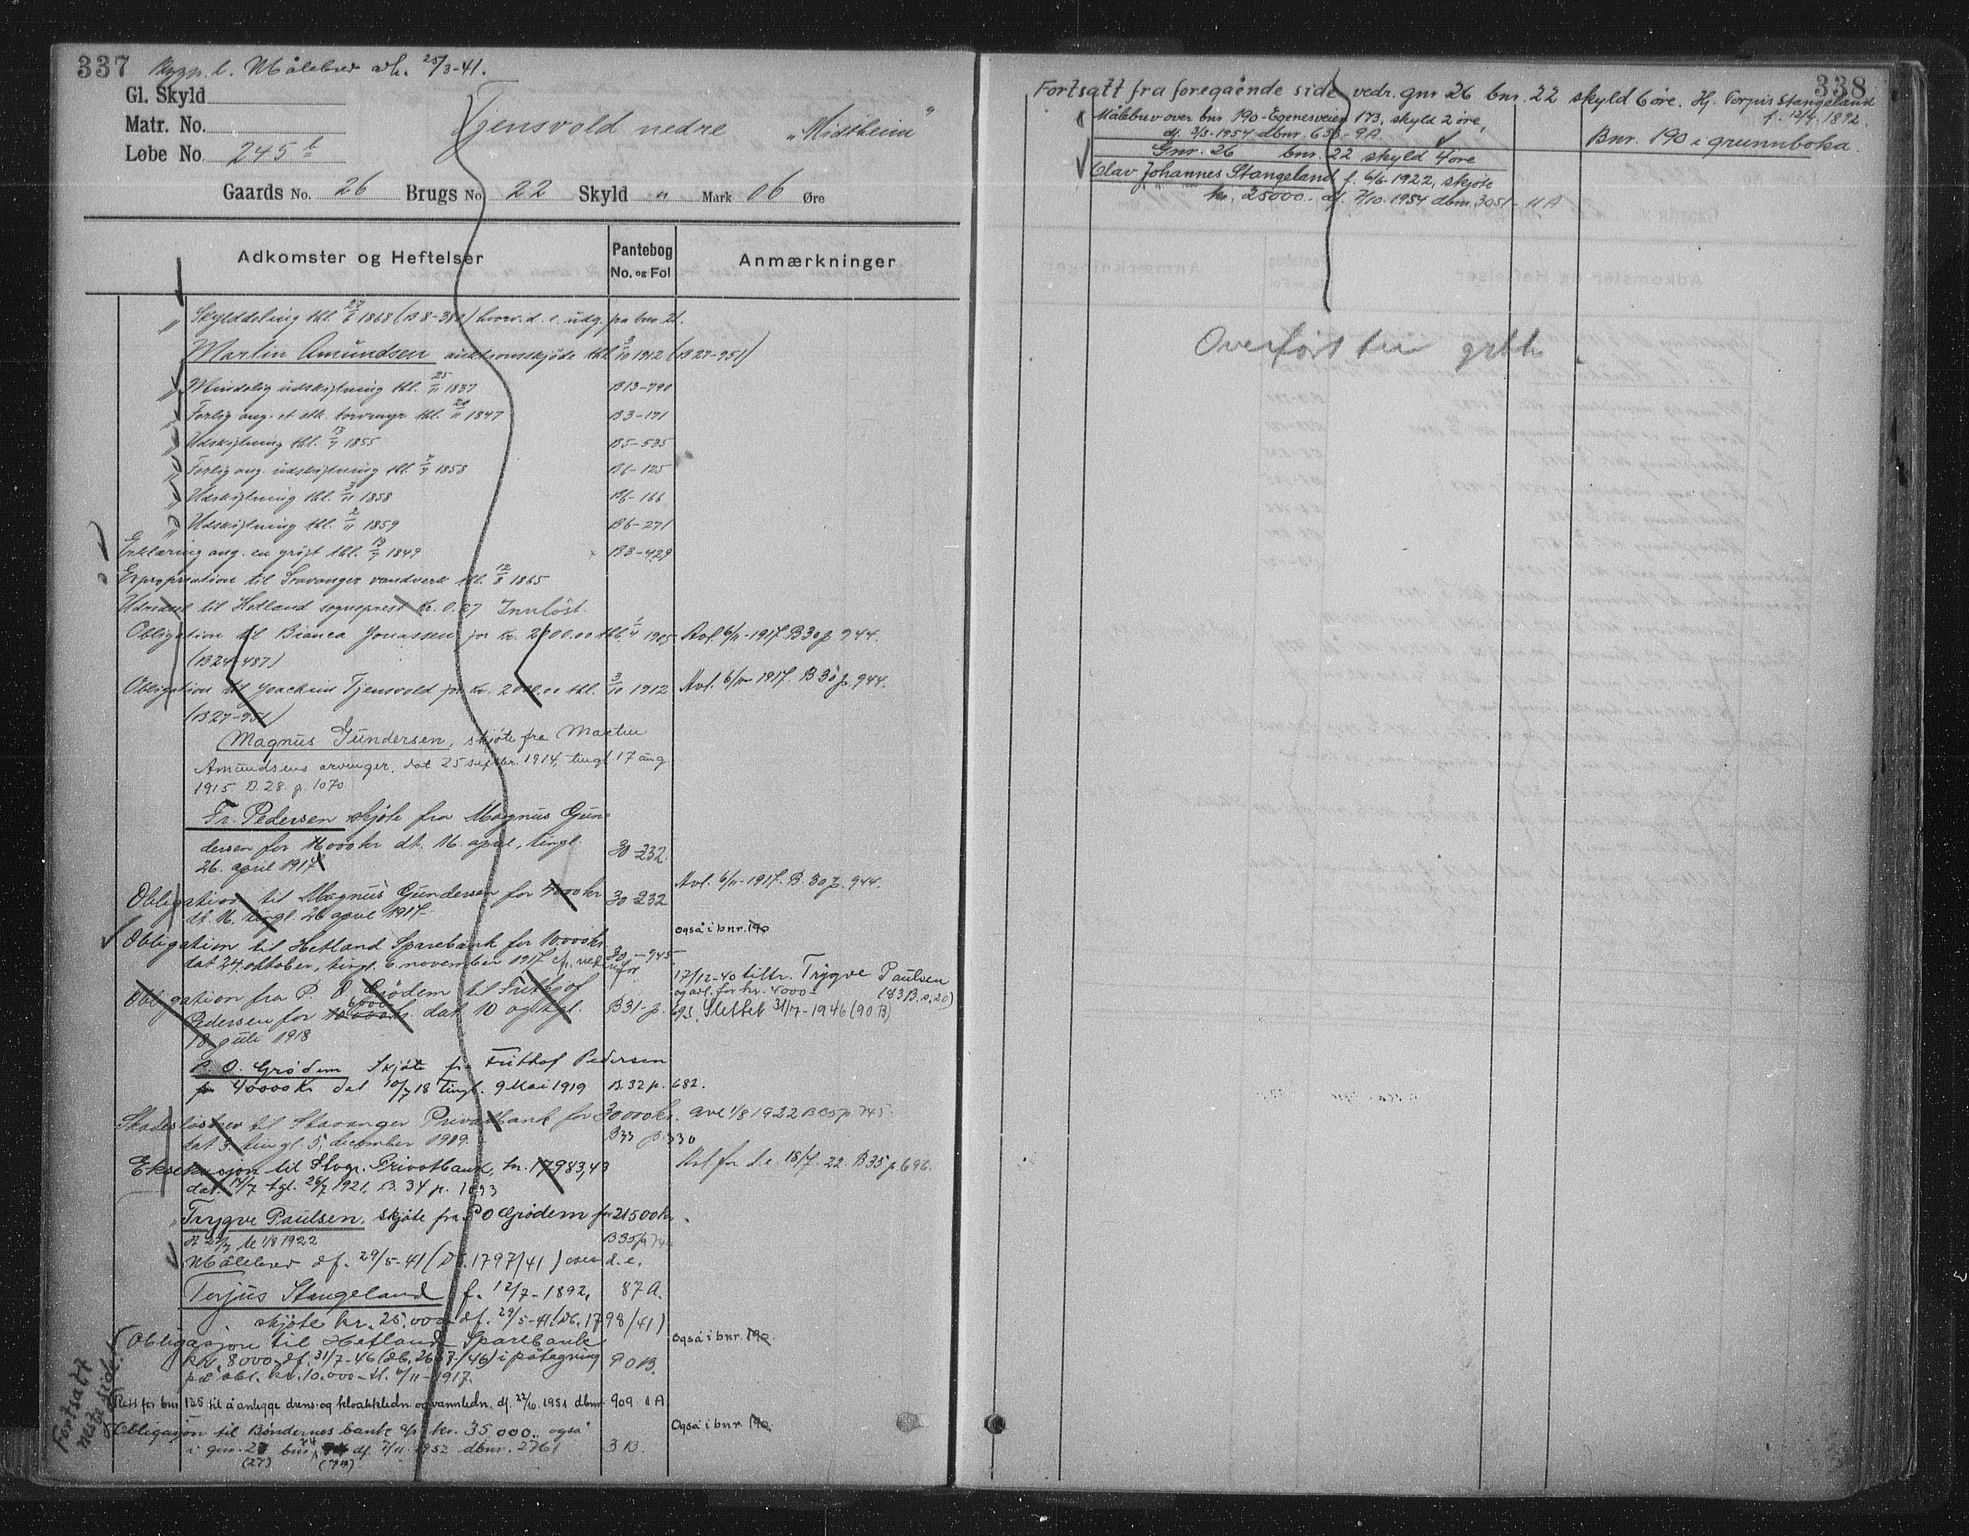 337 Bygn. l. Målebrev avh. 25/3-41.
Gl. Skyld
Matr. No.
Løbe No. 245 b
Tjensvold nedre "Midtheim"
Gaards No. 26 Brugs No 22 Skyld " Mark 06 Øre
Adkomster og Heftelser
Pantebog No. og Fol
Anmærkninger
" Skylddeling thl. 27/6 1868 (B8-380) hvorv. d. e. udg. fra bno. 21.
Martin Amundsen auktionsskjøde thl 3/10 1912 (B27-951)
" Mindelig udskiftning thl. 25/11 1837 B13-790
" Forlig ang. et stk. torvmyr thl. 20/11 1847 B3-171
" Udskiftning thl. 13/9 1855 B5-535
" Forlig ang. udskiftning thl. 7/9 1858 B6-125
" Udskiftning thl. 3/11 1858 B6-166
" Udskiftning thl. 2/11 1859 B6-271
Erklæring ang. en grøft thl. 19/9 1849 B3-429
Expropriation til Stavanger vandverk thl. 12/8 1865
Udredsel til Hetland sogneprest kr. 0.27 Innløst.
Obligation til Bianca Jonassen for kr. 2000.00 thl. 6/4 1905 Avl. 6/11-1917. B 30 p. 944.
(B24-487)
Obligation til Joachim Tjensvold for kr. 2000.00 thl. 3/10 1912 Avl. 6/11-1917. B 30 p. 944.
(B27-951)
Magnus Gundersen, skjøte fra Martin
Amundsens arvinger, dat 25 septbr. 1914, tingl 17 aug
1915 B. 28 p. 1070
Fr. Pedersen skjøte fra Magnus Gun-
dersen for 16000 kr dt. 16. april, tingl.
26. april 1917 30-232.
Obligation til Magnus Gundersen for 4000 kr 30-232 Avl. 6/11-1917. B. 30 p. 944.
dt. 16. tingl. 26 april 1917.
Obligation til Hetland Sparebank for 10.000 kr Også i bnr. 190
dat 24. oktober, tingl. 6. november 1917 cfr. nedenfor 30-945.
17/12-40 tiltr. Trygve Paulsen
og avl. for kr. 4000- (83 B. s. 20)
Obligation fra P. O. Grødem til Frithjof
Pedersen for 10 000 kr. 6000 dat 10 og tgl. B31-p. 695. Slettet 31/7-1946 (90 B)
18. juli 1918
P. O. Grødem Skjøte fra Frithof Pedersen
for 40000 kr dat 10/7 18 tingl. 9 Mai 1919 B. 32 p. 682.
Skadesløsbrev til Stavanger Privatbank for 30 000 kr. avl 1/8 1922 B 35 p 745.
dat 3. tingl. 5. december 1919. B33 p. 330
Eksekusjon til Stvgr. Privatbank, kr. 17983,49 Avl for d. e. 18/7. 22. B 35 p 696.
dat. 14/7 tgl. 26/7 1921. B. 34 p. 1093
Trygve Paulsen, skjøte fra P O Grødem for 21500 kr.
dt 29/7 tl 1/8 1922 B35 p 744
Målebrev df. 29/5-41 (Db. 1797/41) over d. e.
Torjus Stangeland f. 12/7-1892, 87 A.
skjøte kr. 25.000 df. 29/5-41. (Db. 1798/41)
Obligasjon til Hetland Sparebank Også i bnr. 190.
kr. 8000 df. 31/7-46 (db. 2668-/46) i påtegning 90 B.
på obl. kr. 10.000- tl. 6/11-1917.
Rett for bnr 135 til å anlegge drens- og kloakkledn og vannledn. df. 22/10 1951 dbnr 909 8 A
Obligasjon til Bøndernes bank a/s kr. 35.000.. også Også i bnr 190.
i gnr. 27 bnr 74 df. 7/11 1952 dbnr. 2761 3 B.
(27) (74)
Fortsatt
neste side!
338
Fortsatt fra foregående side vedr. gnr 26 bnr. 22 skyld 6 øre. Hj. Torjus Stangeland
f. 12/7.1892.
Målebrev over bnr 190 - Egenesveien 173, skyld 2 øre,
df. 3/3-1954 dbnr. 656-9 A
Bnr. 190 i grunnboka.
Gnr. 26 bnr. 22 skyld 4 øre
Olav Johannes Stangeland f. 6/6 1922, skjøte
kr. 25000.- df. 7/10. 1954 dbnr. 3051-11 A
Overført til grbl.